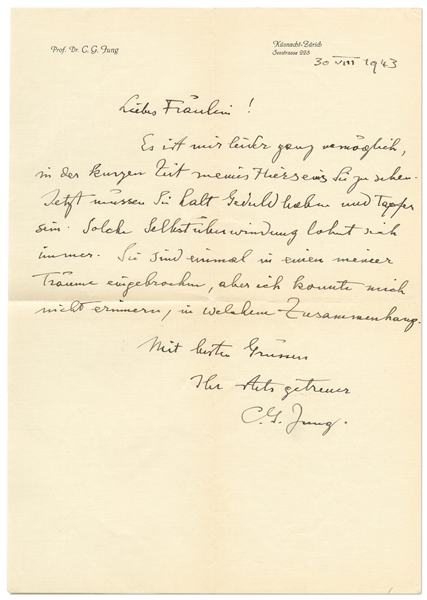 Prof. Dr. C. G. Jung
Küsnacht-Zürich
Seestrasse 228
30 VIII 1943
Liebes Fräulein!
Es ist mir leider ganz unmöglich,
in der kurzen Zeit meines Hierseins Sie zu sehen.
Jetzt müssen Sie halt Geduld haben und Tapfer
sein. Solche Selbstüberwindung lohnt sich
immer. Sie sind einmal in einen meiner
Träume eingebrochen, aber ich konnte mich
nicht erinnern, in welchem Zusammenhang.
Mit besten Grüssen
Ihr stets getreuer
C. G. Jung.